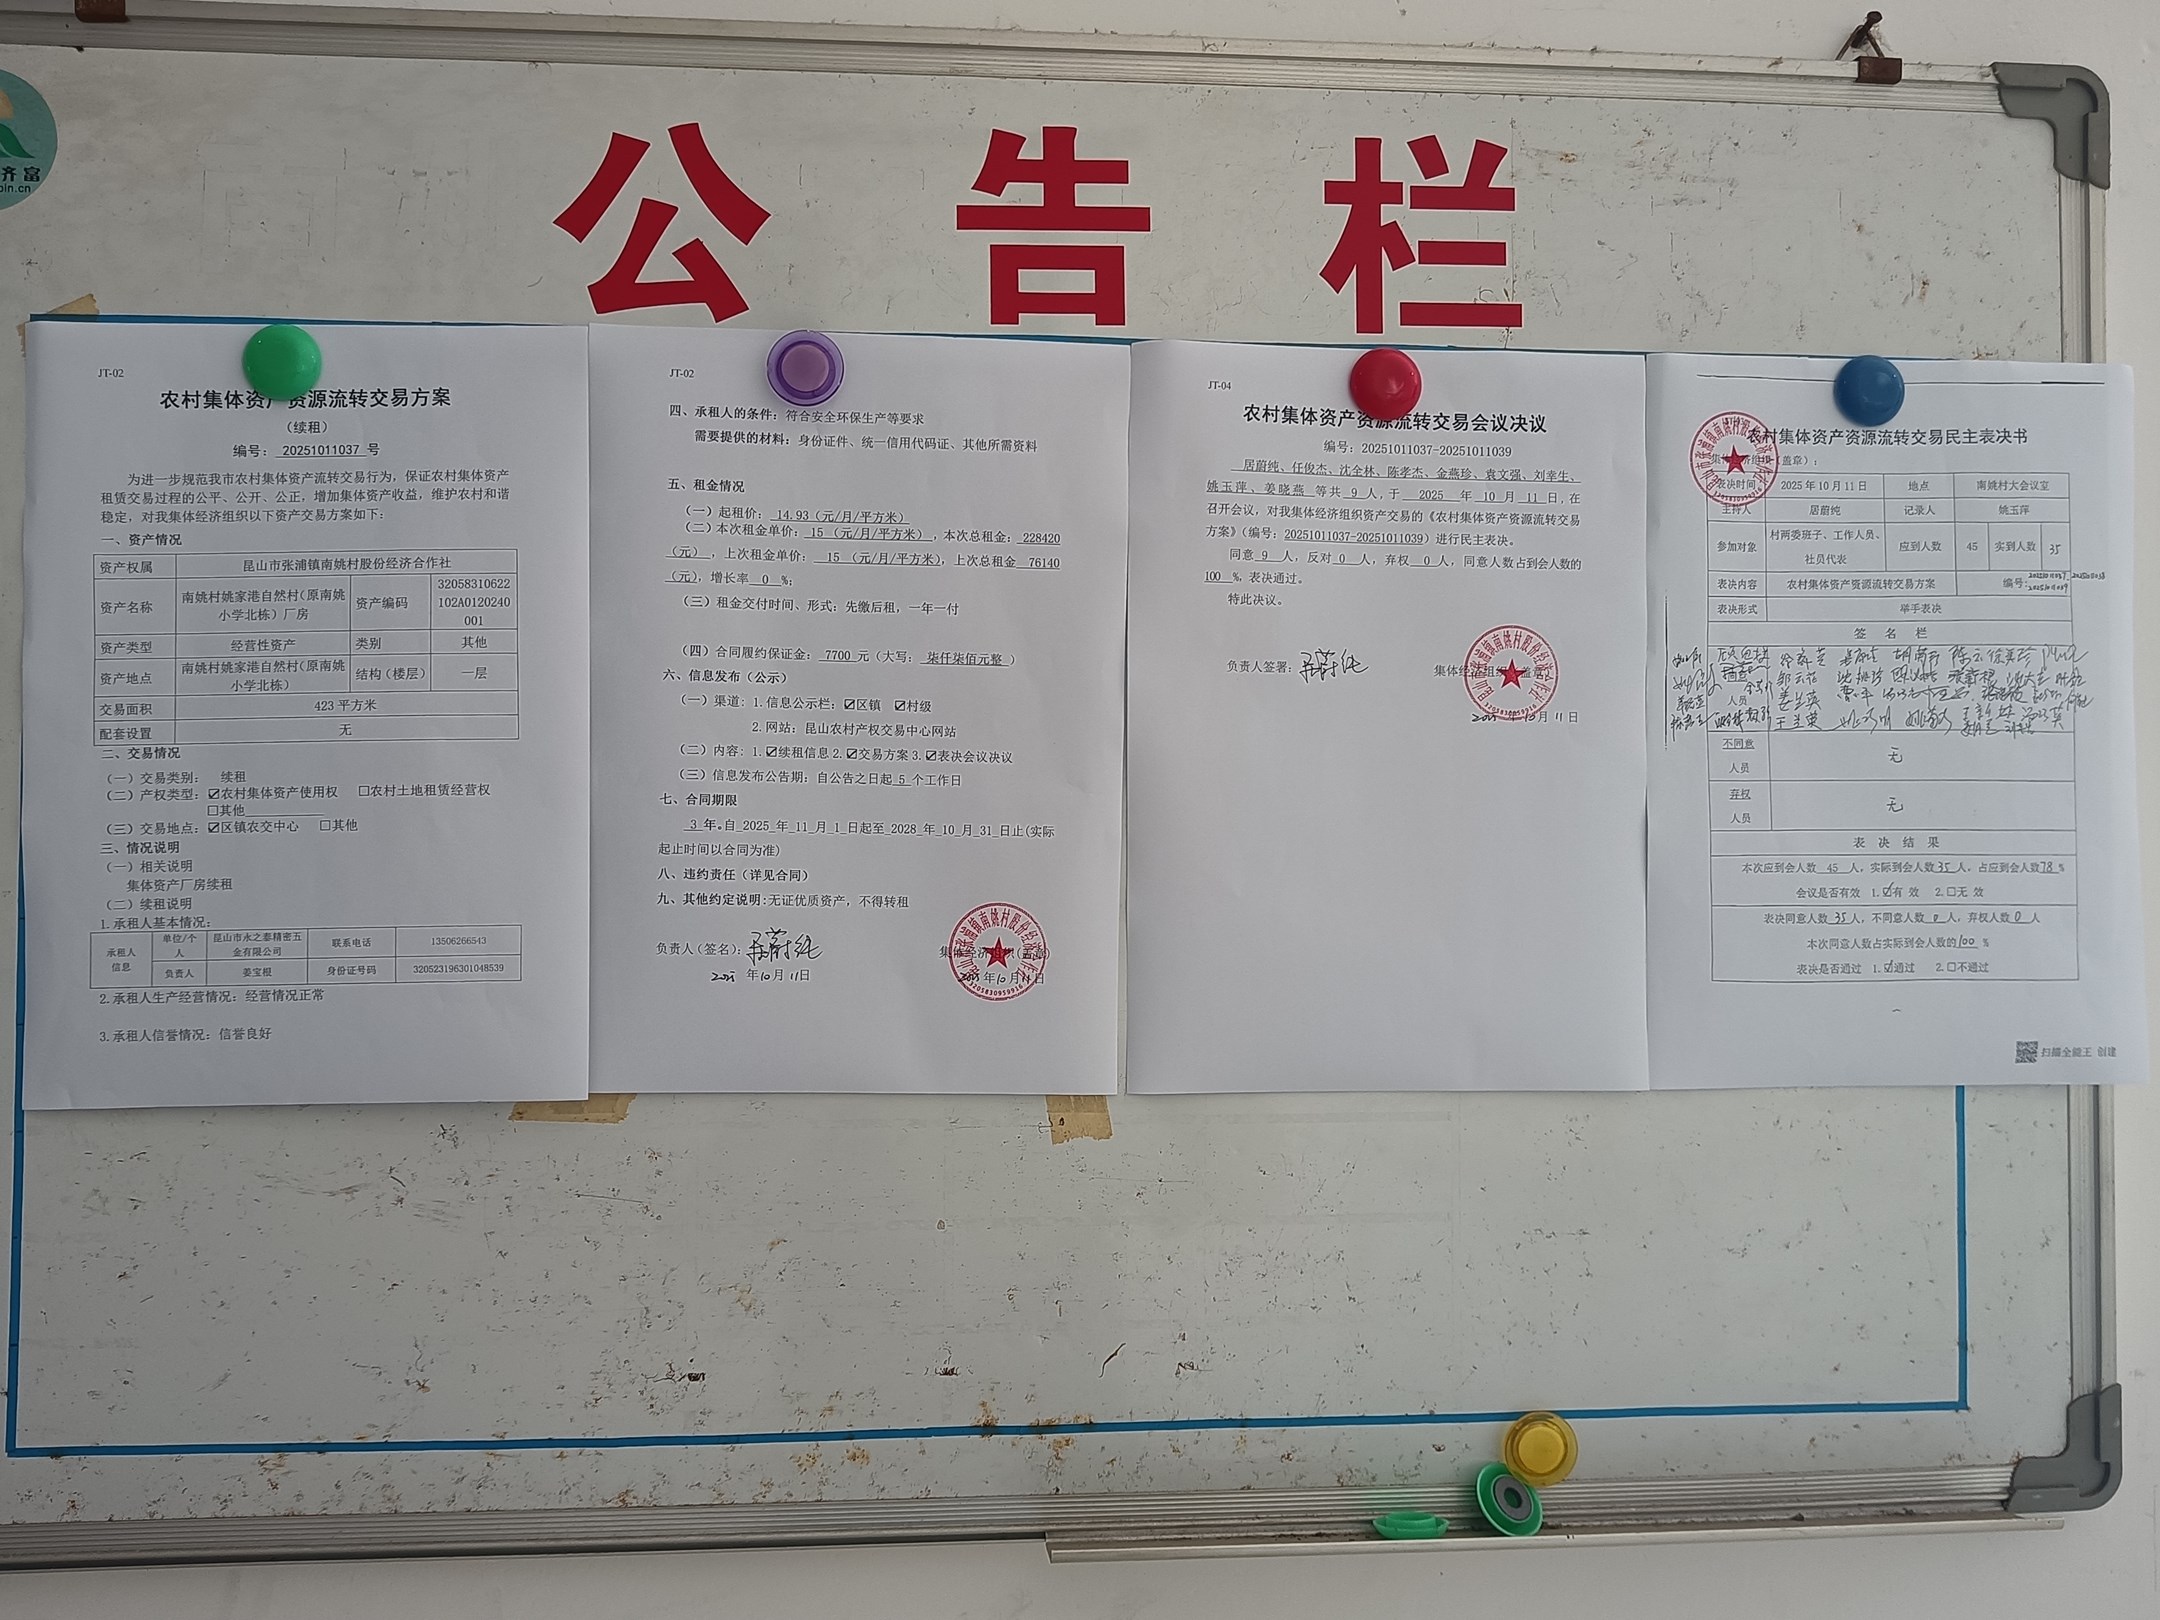 公告栏
齐富
pin.cn
JT-02
农村集体资产资源流转交易方案
（续租）
编号：20251011037 号
为进一步规范我市农村集体资产流转交易行为，保证农村集体资产
租赁交易过程的公平、公开、公正，增加集体资产收益，维护农村和谐
稳定，对我集体经济组织以下资产交易方案如下：
一、资产情况
资产权属 昆山市张浦镇南姚村股份经济合作社
资产名称 南姚村姚家港自然村（原南姚小学北栋）厂房 资产编码 32058310622102A0120240001
资产类型 经营性资产 类别 其他
资产地点 南姚村姚家港自然村（原南姚小学北栋） 结构（楼层） 一层
交易面积 423 平方米
配套设置 无
二、交易情况
（一）交易类别： 续租
（二）产权类型：☑农村集体资产使用权 □农村土地租赁经营权
□其他
（三）交易地点：☑区镇农交中心 □其他
三、情况说明
（一）相关说明
集体资产厂房续租
（二）续租说明
1.承租人基本情况：
承租人信息 单位/个人 昆山市永之泰精密五金有限公司 联系电话 13506266543
负责人 姜宝根 身份证号码 320523196301048539
2.承租人生产经营情况：经营情况正常
3.承租人信誉情况：信誉良好
JT-02
四、承租人的条件：符合安全环保生产等要求
需要提供的材料：身份证件、统一信用代码证、其他所需资料
五、租金情况
（一）起租价： 14.93（元/月/平方米）
（二）本次租金单价： 15 （元/月/平方米），本次总租金： 228420
（元），上次租金单价： 15 （元/月/平方米），上次总租金 76140
（元），增长率 0 %；
（三）租金交付时间、形式：先缴后租，一年一付
（四）合同履约保证金： 7700 元（大写： 柒仟柒佰元整 ）
六、信息发布（公示）
（一）渠道：1.信息公示栏：☑区镇 ☑村级
2.网站：昆山农村产权交易中心网站
（二）内容：1.☑续租信息 2.☑交易方案 3.☑表决会议决议
（三）信息发布公告期：自公告之日起 5 个工作日
七、合同期限
3 年。自 2025 年 11 月 1 日起至 2028 年 10 月 31 日止(实际
起止时间以合同为准)
八、违约责任（详见合同）
九、其他约定说明:无证优质资产，不得转租
负责人（签名）： 居蔚纯 集体经济组织（盖章）
2025 年 10 月 11 日 2025 年 10 月 11 日
JT-04
农村集体资产资源流转交易会议决议
编号：20251011037-20251011039
居蔚纯、任俊杰、沈全林、陈孝杰、金燕珍、袁文强、刘幸生、
姚玉萍、姜晓燕 等共 9 人，于 2025 年 10 月 11 日，在
召开会议，对我集体经济组织资产交易的《农村集体资产资源流转交易
方案》（编号：20251011037-20251011039）进行民主表决。
同意 9 人，反对 0 人，弃权 0 人，同意人数占到会人数的
100 %，表决通过。
特此决议。
负责人签署： 居蔚纯 集体经济组织（盖章）
2025 年 10 月 11 日
农村集体资产资源流转交易民主表决书
集体经济组织（盖章）：
表决时间 2025 年 10 月 11 日 地点 南姚村大会议室
主持人 居蔚纯 记录人 姚玉萍
参加对象 村两委班子、工作人员、社员代表 应到人数 45 实到人数 35
表决内容 农村集体资产资源流转交易方案 编号：
表决形式 举手表决
签 名 栏
人员
王兰英
不同意人员 无
弃权人员 无
表 决 结 果
本次应到会人数 45 人，实际到会人数 35 人，占应到会人数 78 %
会议是否有效 1.☑有 效 2.□无 效
表决同意人数 35 人，不同意人数 0 人，弃权人数 0 人
本次同意人数占实际到会人数的 100 %
表决是否通过 1.☑通过 2.□不通过
扫描全能王 创建